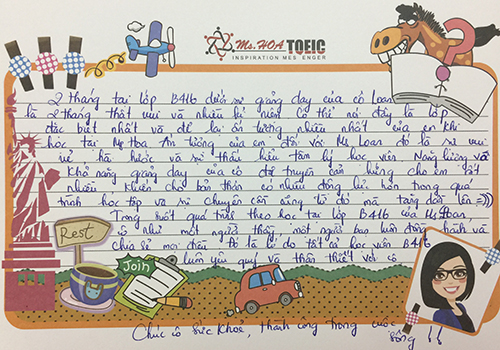 Ms. HOA TOEIC
INSPIRATION MESSENGER
2 tháng tại lớp B416 dưới sự giảng dạy của cô Loan
là 2 tháng thật vui và nhiều kỷ niệm có thể nói đây là lớp
đặc biệt nhất và để lại ấn tượng nhiều nhất của em khi
học tại Ms Hoa. Ấn tượng của em đối với Ms Loan đó là sự vui
vẻ hài hước và sự thấu hiểu tâm lý học viên. Năng lượng và
khả năng giảng dạy của cô đã truyền cảm hứng cho em rất
nhiều khiến cho bản thân có nhiều động lực hơn trong quá
trình học tập và sự chuyên cần cũng từ đó mà tăng dần lên =))
Trong suốt quá trình theo học tại lớp B416 của Ms Loan,
cô như một người thầy, một người bạn luôn đồng hành và
chia sẻ mọi điều. Đó là lí do tất cả học viên B416
luôn yêu quý và thân thiết với cô
Rest
Join
Chúc cô sức khoẻ, thành công trong cuộc
sống !!